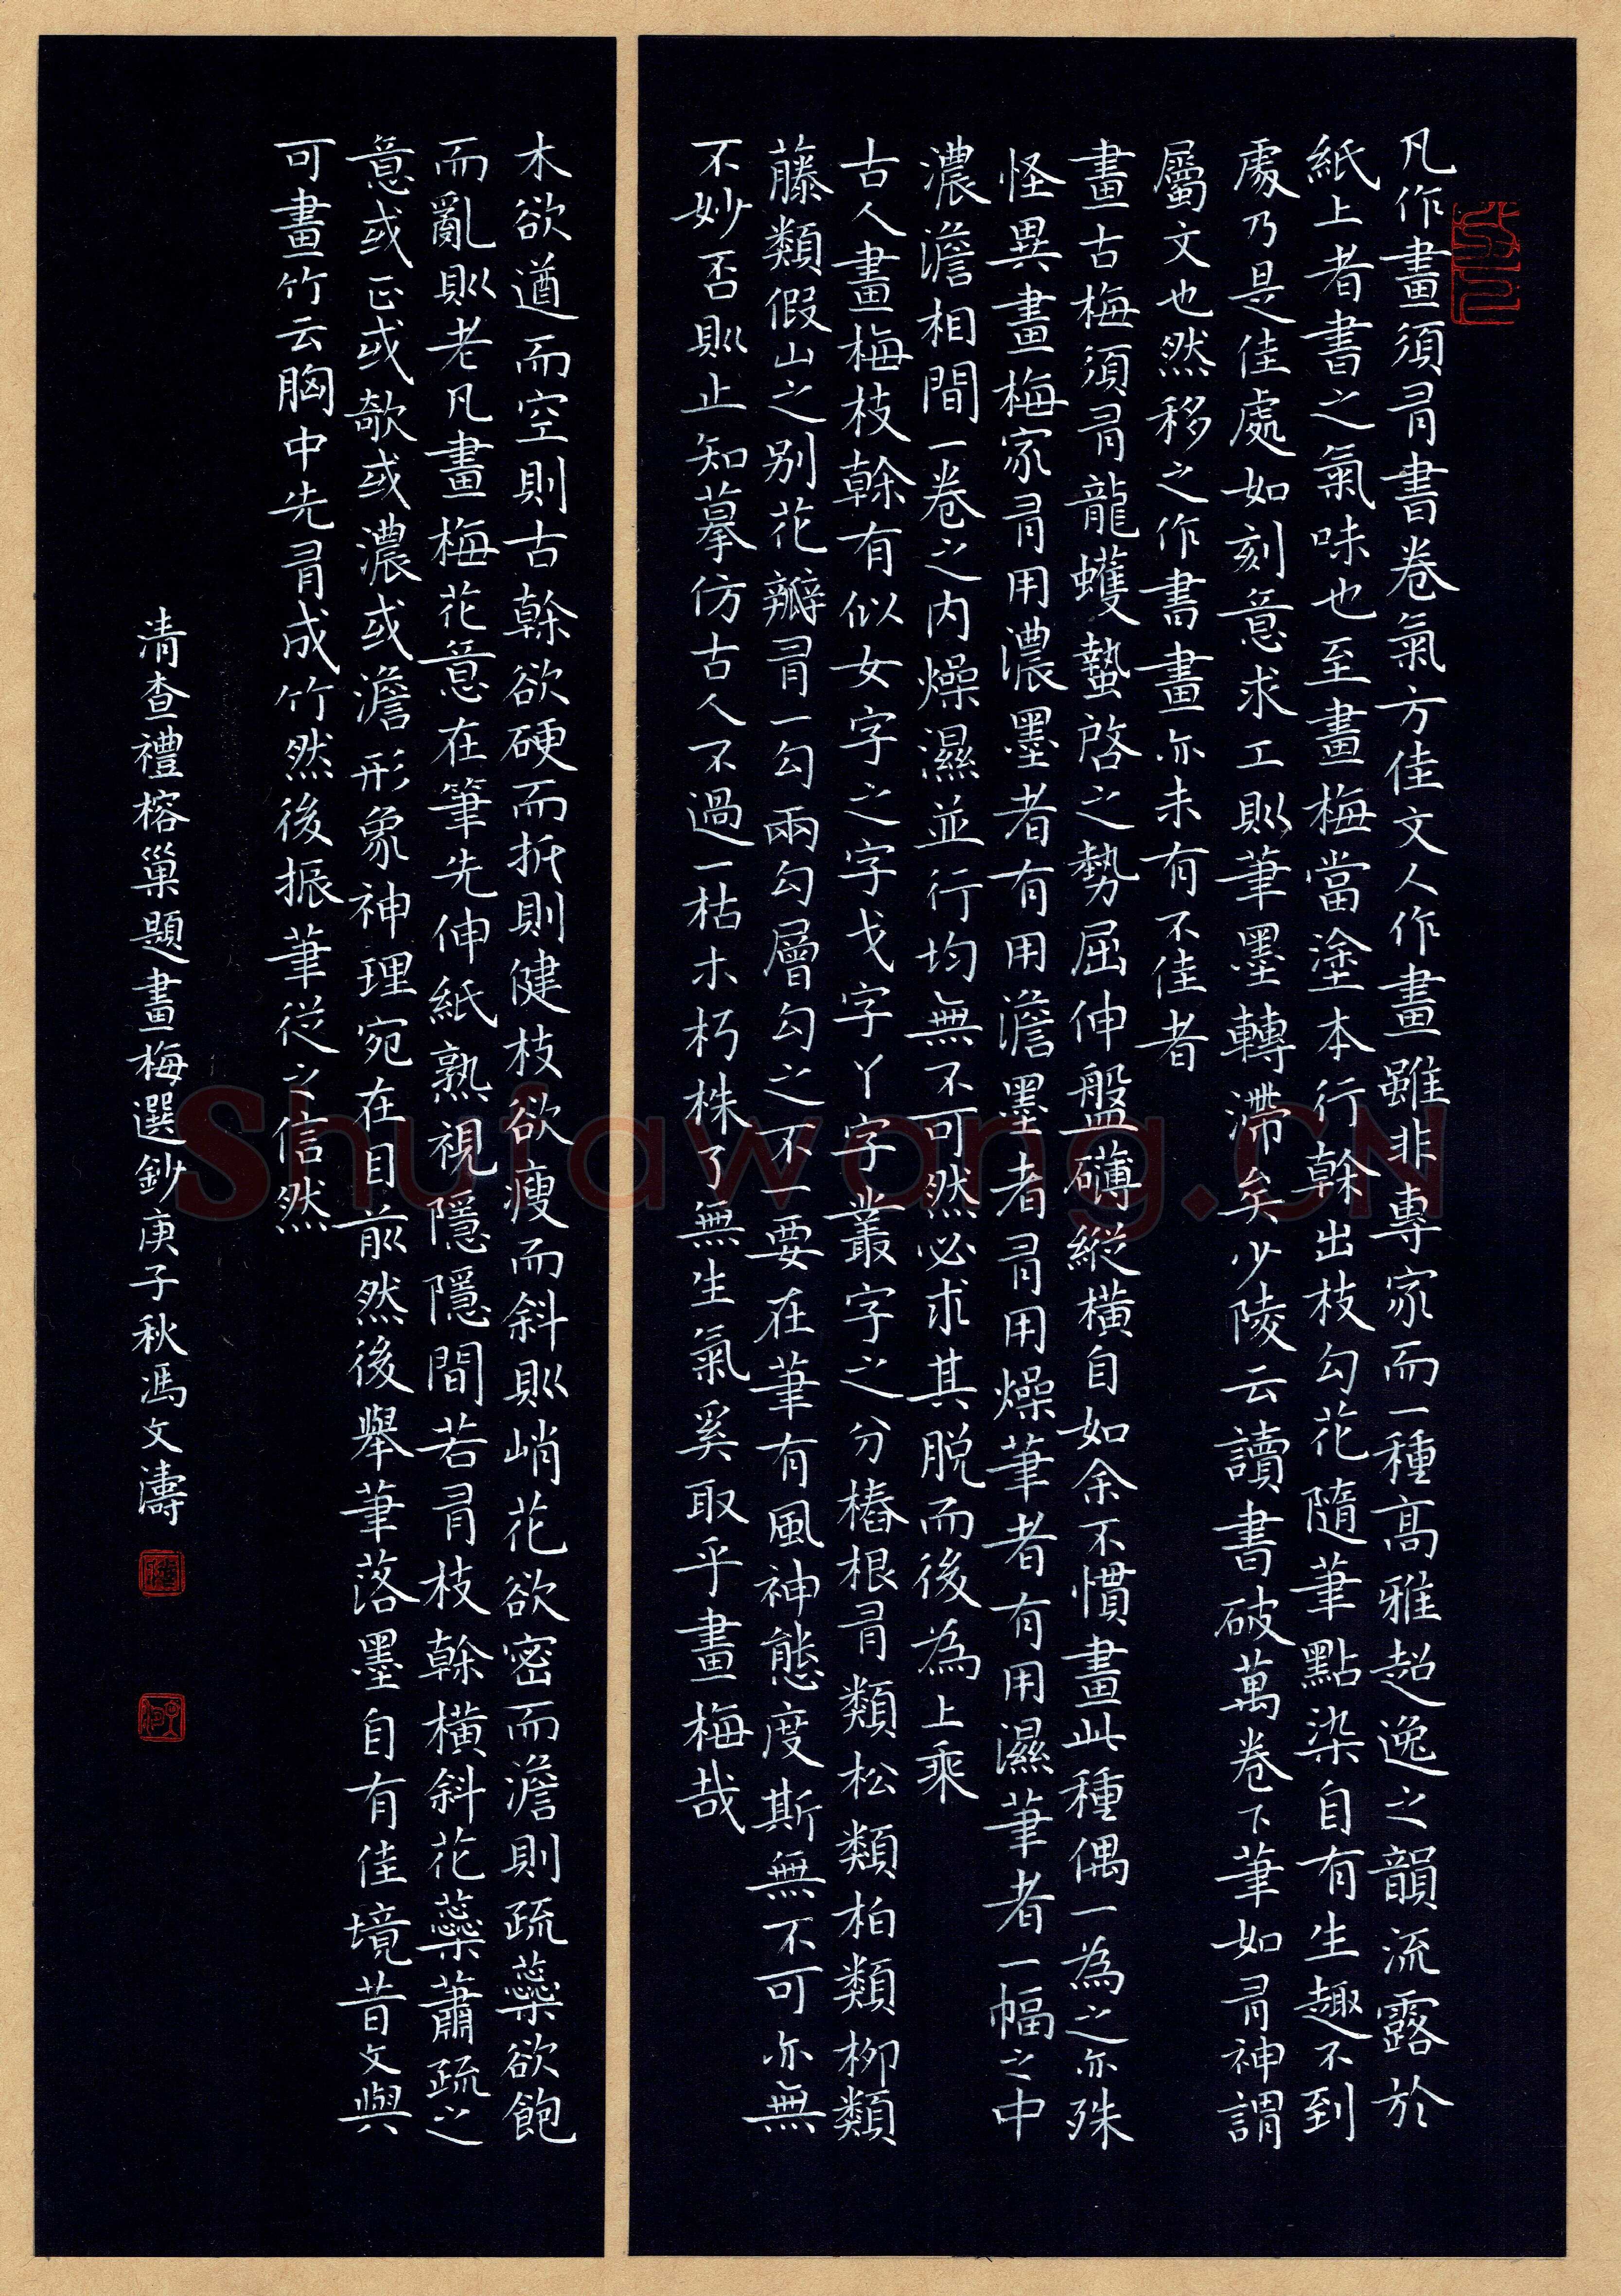 凡作畫須有書卷氣方佳文人作畫雖非專家而一種高雅超逸之韻流露於
紙上者書之氣味也至畫梅當塗本行榦出枝勾花隨筆點染自有生趣不到
處乃是佳處如刻意求工則筆墨轉滯矣少陵云讀書破萬卷下筆如有神謂
屬文也然移之作書畫亦未有不佳者
畫古梅須有龍蠖蟄啓之勢屈伸盤礴縱橫自如余不慣畫此種偶一為之亦殊
怪異畫梅家有用濃墨者有用澹墨者有用燥筆者有用濕筆者一幅之中
濃澹相間一卷之内燥濕並行均無不可然必求其脱而後為上乘
古人畫梅枝榦有似女字之字戈字丫字叢字之分樁根有類松類柏類柳類
藤類假山之别花瓣有一勾兩勾層勾之不一要在筆有風神態度斯無不可亦無
不妙否則止知摹仿古人不過一枯木朽株了無生氣奚取乎畫梅哉
木欲遒而空則古榦欲硬而折則健枝欲瘦而斜則峭花欲密而澹則疏蘂欲飽
而亂則老凡畫梅花意在筆先伸紙熟視隱隱間若有枝榦橫斜花蘂蕭疏之
意或正或欹或濃或澹形象神理宛在目前然後舉筆落墨自有佳境昔文與
可畫竹云胸中先有成竹然後振筆從之信然
清查禮榕巢題畫梅選鈔庚子秋馮文濤
Shufawang.CN